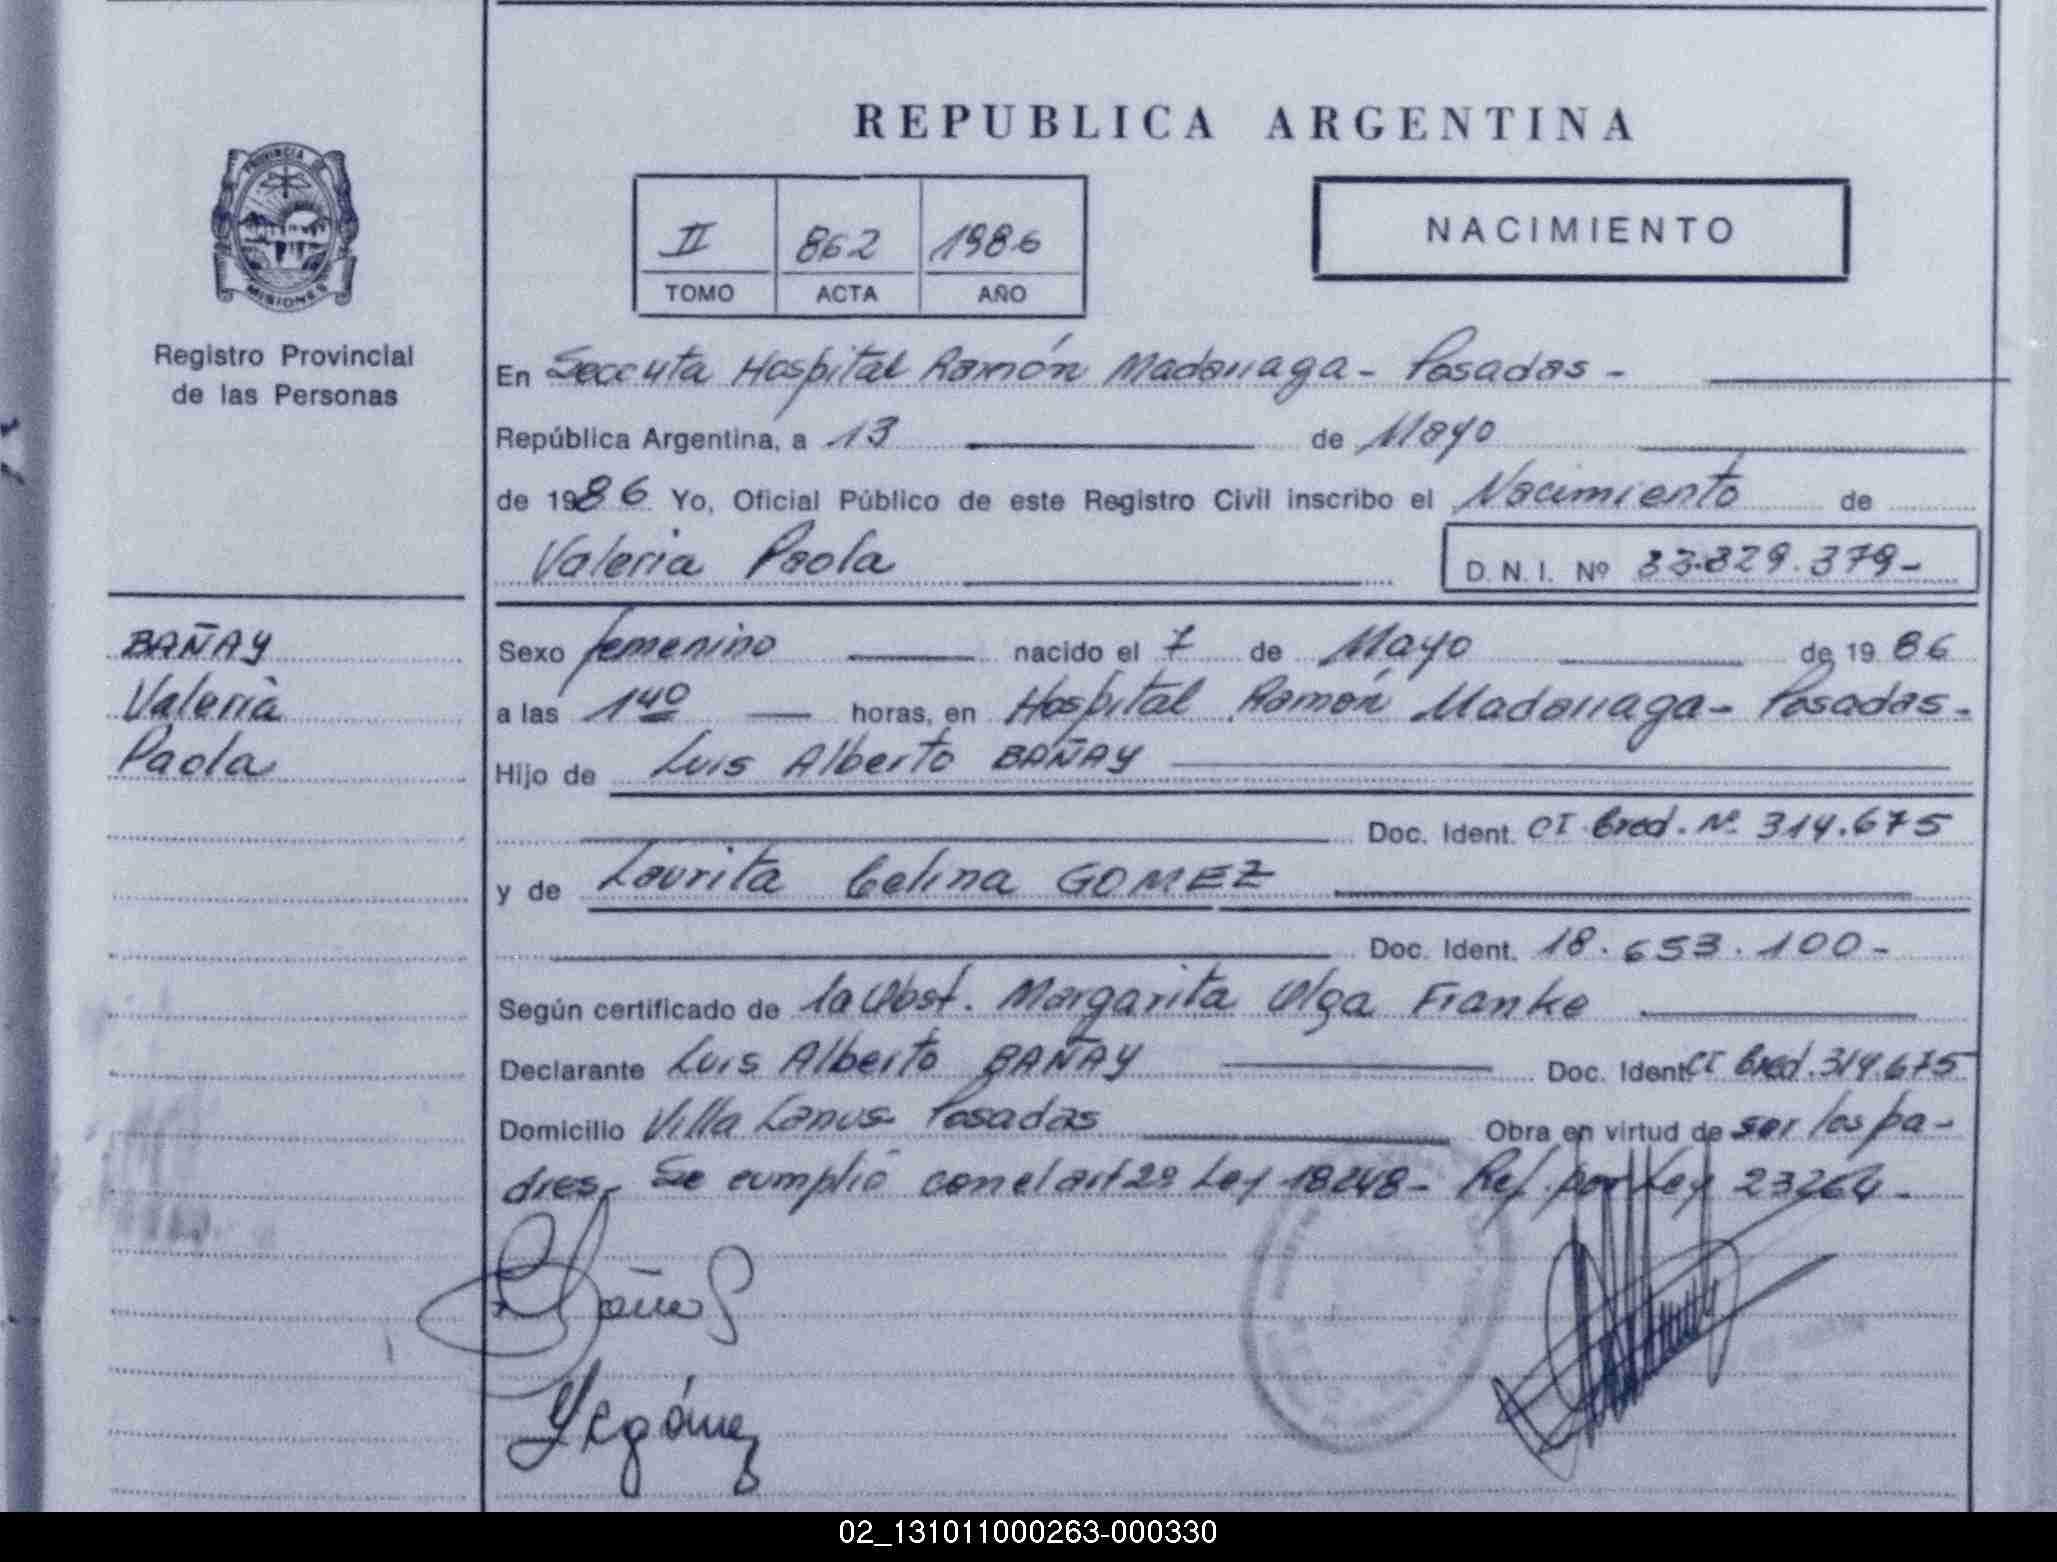 REPUBLICA ARGENTINA
PROVINCIA DE
MISIONES
Registro Provincial
de las Personas
II 862 1986
TOMO ACTA AÑO
NACIMIENTO
En Hospital Ramón Madariaga - Posadas -
República Argentina, a 13 de Mayo
de 1986 Yo, Oficial Público de este Registro Civil inscribo el Nacimiento de
Valeria Paola D.N.I. Nº 33.329.379-
BAÑAY
Valeria
Paola
Sexo femenino nacido el 7 de Mayo de 1986
a las 1 40 horas, en Hospital Ramón Madariaga - Posadas -
Hijo de Luis Alberto BAÑAY
Doc. Ident. CI Cred. Nº 314.675
y de Laurita Celina GOMEZ
Doc. Ident. 18.653.100-
Según certificado de la Obst. Margarita Olga Franke
Declarante Luis Alberto BAÑAY Doc. Ident. CI Cred. 314.675
Domicilio Villa Lanus Posadas Obra en virtud de ser los pa-
dres. Se cumplió con el art 2º Ley 18248 - Ref. por Ley 23264 -
02_131011000263-000330